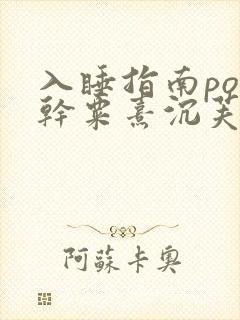 入睡指南po
幹粟熹沉芙
阿蘇卡奧